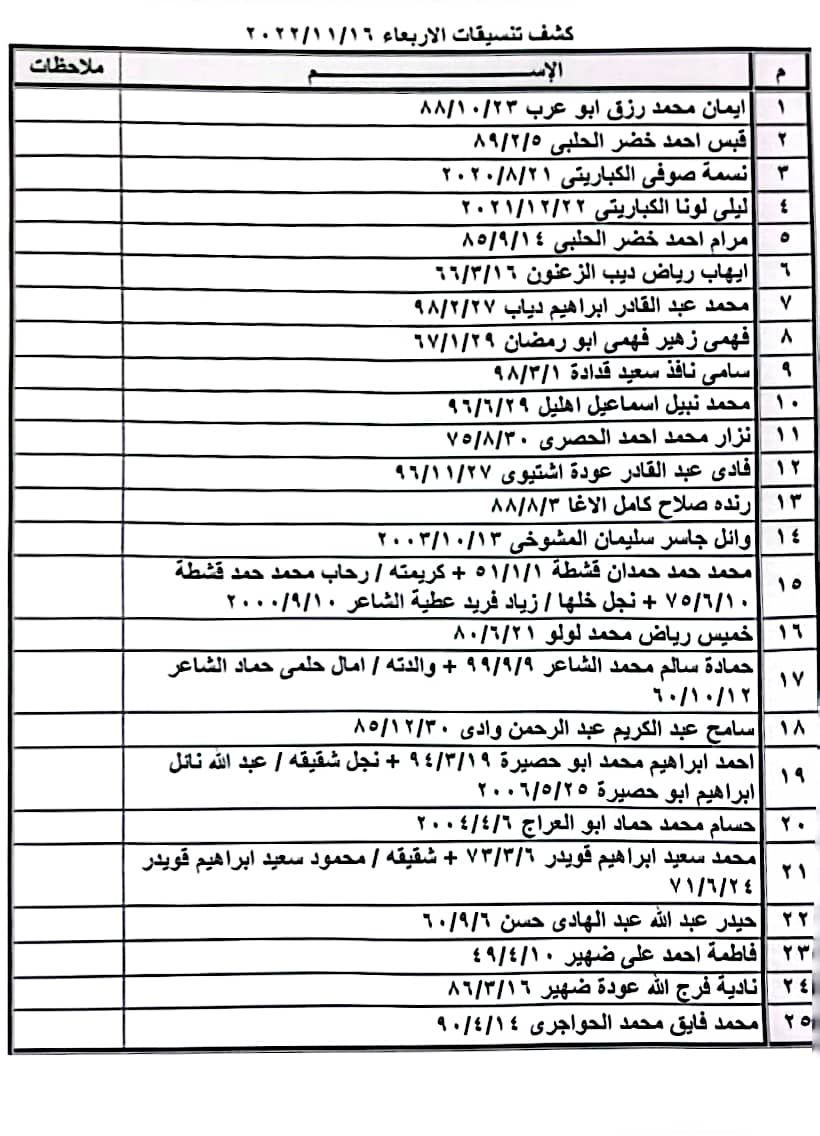 كشف تنسيقات الاربعاء ٢٠٢٢/١١/١٦
م الإســـــــــم ملاحظات
١ ايمان محمد رزق ابو عرب ٨٨/١٠/٢٣
٢ قبس احمد خضر الحلبى ٨٩/٢/٥
٣ نسمة صوفى الكباريتى ٢٠٢٠/٨/٢١
٤ ليلى لونا الكباريتى ٢٠٢١/١٢/٢٢
٥ مرام احمد خضر الحلبى ٨٥/٩/١٤
٦ ايهاب رياض ديب الزعنون ٦٦/٣/١٦
٧ محمد عبد القادر ابراهيم دياب ٩٨/٢/٢٧
٨ فهمى زهير فهمى ابو رمضان ٦٧/١/٢٩
٩ سامى نافذ سعيد قدادة ٩٨/٣/١
١٠ محمد نبيل اسماعيل اهليل ٩٦/٦/٢٩
١١ نزار محمد احمد الحصرى ٧٥/٨/٣٠
١٢ فادى عبد القادر عودة اشتيوى ٩٦/١١/٢٧
١٣ رنده صلاح كامل الاغا ٨٨/٨/٣
١٤ وائل جاسر سليمان المشوخى ٢٠٠٣/١٠/١٣
١٥ محمد حمد حمدان قشطة ٥١/١/١ + كريمته / رحاب محمد حمد قشطة
٧٥/٦/١٠ + نجل خلها / زياد فريد عطية الشاعر ٢٠٠٠/٩/١٠
١٦ خميس رياض محمد لولو ٨٠/٦/٢١
١٧ حمادة سالم محمد الشاعر ٩٩/٩/٩ + والدته / امال حلمى حماد الشاعر
٦٠/١٠/١٢
١٨ سامح عبد الكريم عبد الرحمن وادى ٨٥/١٢/٣٠
١٩ احمد ابراهيم محمد ابو حصيرة ٩٤/٣/١٩ + نجل شقيقه / عبد الله نائل
ابراهيم ابو حصيرة ٢٠٠٦/٥/٢٥
٢٠ حسام محمد حماد ابو العراج ٢٠٠٤/٤/٦
٢١ محمد سعيد ابراهيم قويدر ٧٣/٣/٦ + شقيقه / محمود سعيد ابراهيم قويدر
٧١/٦/٢٤
٢٢ حيدر عبد الله عبد الهادى حسن ٦٠/٩/٦
٢٣ فاطمة احمد على ضهير ٤٩/٤/١٠
٢٤ نادية فرج الله عودة ضهير ٨٦/٣/١٦
٢٥ محمد فايق محمد الحواجرى ٩٠/٤/١٤